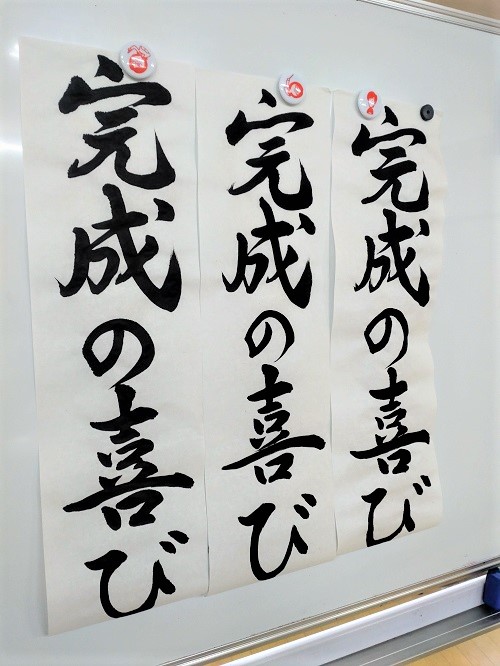 完成の喜び
完成の喜び
完成の喜び